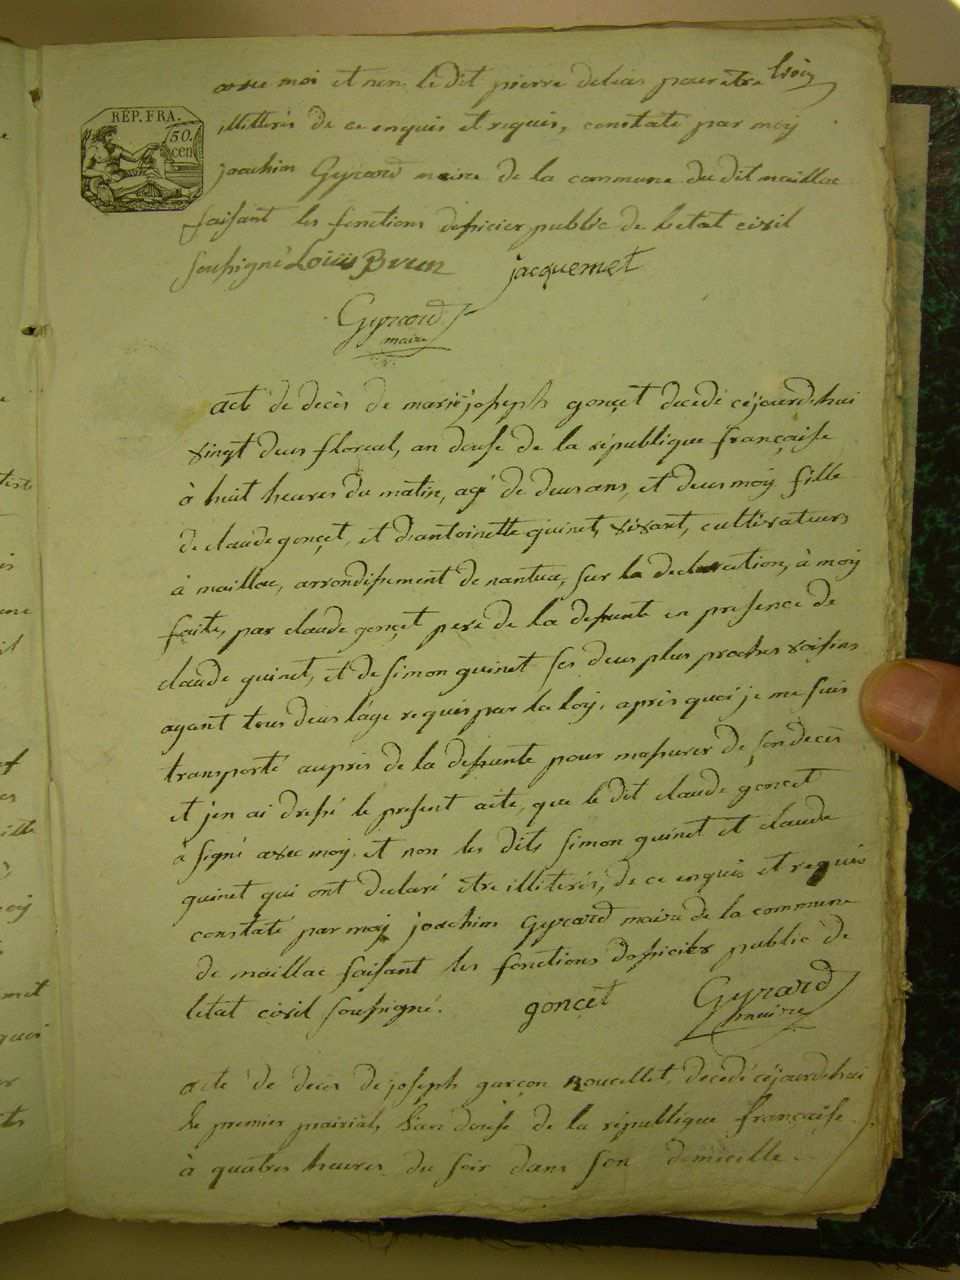 avec moi et non le dit pierre delias pour être
illitterés de ce enquis et requis, constaté par moy
REP. FRA.
50.
cen
joachim Gyrard maire de la commune du dit maillac
faisant les fonctions d'oficier public de l'etat civil
sousigné Louis Brun jacquemet
Gyrard
maire
acte de decès de marie joseph gonçet decedé cejourd'hui
vingt deus floreal, an douse de la république française
à huit heures du matin, agé de deus ans, et deus moy fille
de claude gonçet, et d'antoinette guinet, vivant, cultivateurs
à maillac, arrondissement de nantua, sur la declaration, à moy
faite, par claude gonçet pere de la defunte en presence de
claude guinet, et de simon guinet ses deus plus proches voisins
ayant tous deus l'âge requis par la loy, après quoi je me suis
transporté auprès de la defunte pour m'assurer de son decès
et j'en ai dressé le present acte, que le dit claude gonçet
a signé avec moy et non les dits simon guinet et claude
guinet qui ont declaré etre illiterés, de ce enquis et requis
constaté par moy joachim Gyrard maire de la commune
de maillac faisant les fonctions d'oficier public de
l'etat civil sousigné. gonçet Gyrard
maire
acte de decès de joseph garçon Roucellet, decedé cejourd'hui
le premier prairial, l'an douse de la république française
à quatres heures du soir dans son domicille